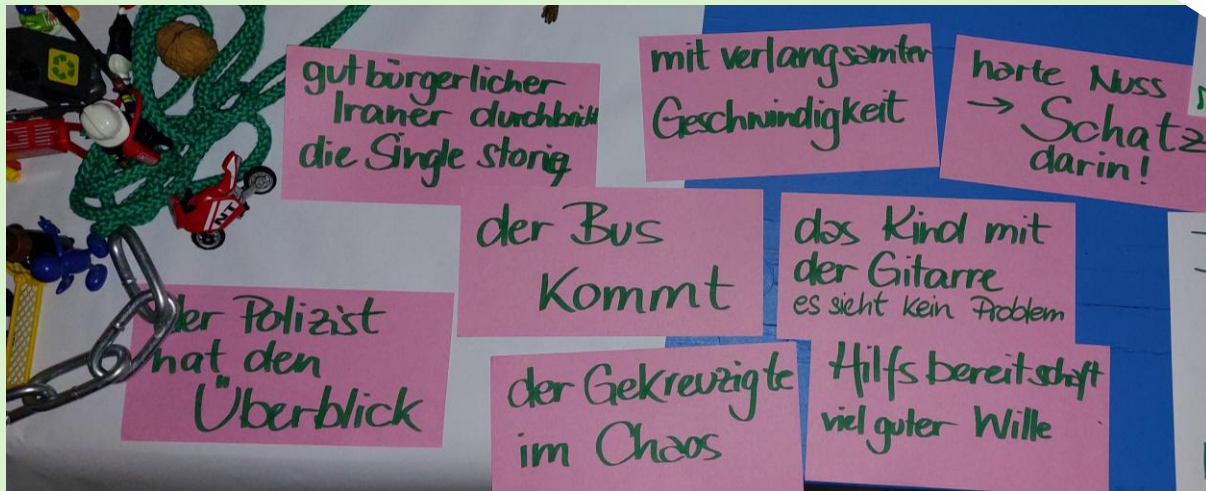 gutbürgerlicher
Iraner durchbricht
die Single storig
mit verlangsamter
Geschwindigkeit
harte Nuss
→ Schatz
darin!
der Bus
Kommt
das Kind mit
der Gitarre
es sieht kein Problem
der Polizist
hat den
Überblick
der Gekreuzigte
im Chaos
Hilfsbereitschaft
viel guter Wille
NT